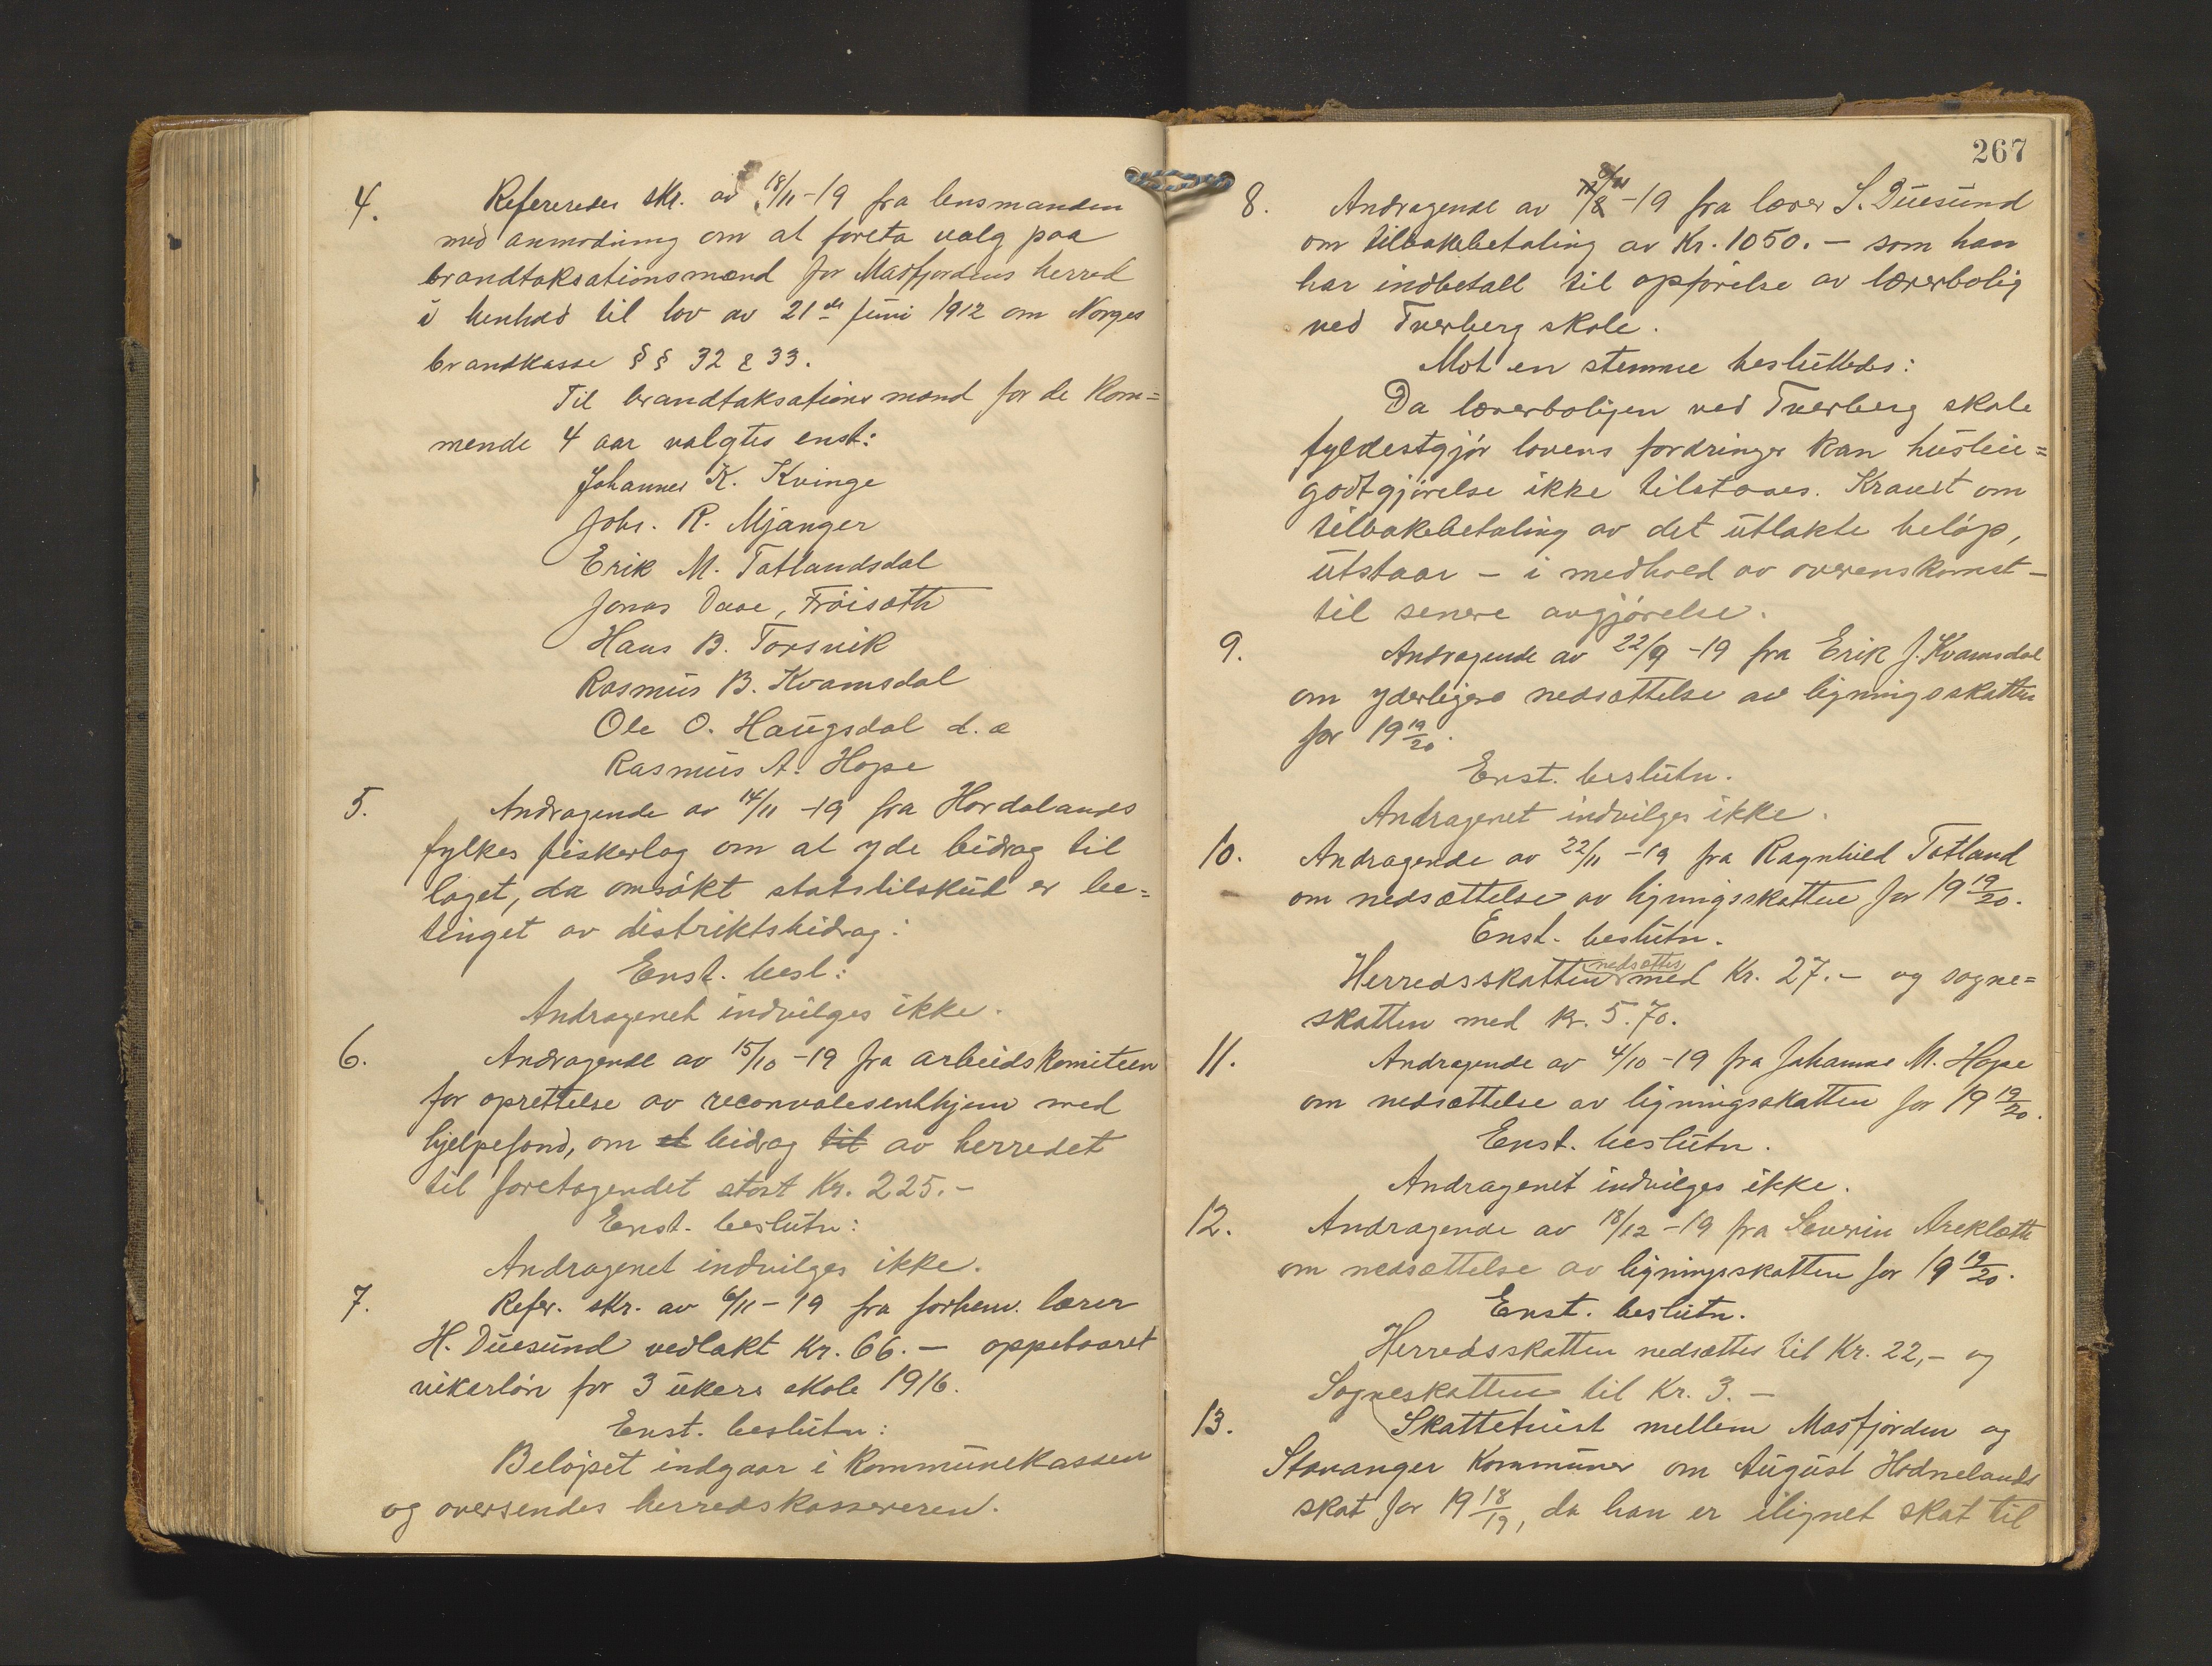 4. Refereredes skr. av 18/11-19 fra lensmanden
med anmodning om at foreta valg paa
brandtaksationsmænd for Masfjordens herred
i henhold til lov av 21de juni 1912 om Norges
brandkasse § § 32 & 33.
Til brandtaksationsmænd for de kom=
mende 4 aar valgtes enst:
Johannes K. Kvinge
Johs. R. Mjanger
Erik M. Totlandsdal
Jonas Daae, Frøisæth
Hans B. Torsvik
Rasmus B. Kvamsdal
Ole O. Haugsdal d.æ
Rasmus A. Hope
5. Andragende av 14/11 -19 fra Hordalands
fylkes fiskerlag om at yde bidrag til
laget, da omsøkt statstilskud er be=
tinget av distriktsbidrag:
Enst. besl:
Andragenet indvilges ikke.
6. Andragende av 15/10 -19 fra arbeidskomiteen
for oprettelse av reconvalesenthjem med
hjelpefond, om et bidrag til av herredet
til foretagendet stort Kr. 225.-
Enst. beslutn:
Andragenet indvilges ikke.
7. Refer. skr. av 6/11-19 fra forhenv. lærer
H. Duesund vedlakt Kr. 66.- oppebaaret
vikarløn for 3 ukers skole 1916.
Enst. beslutn:
Beløpet indgaar i kommunekassen
og oversendes herredskassereren.
267
8. Andragende av -19 fra lærer S. Duesund
om tilbakebetaling av Kr. 1050.- som han
har indbetalt til opførelse av lærerbolig
ved Tverberg skole.
Mot en stemme besluttedes:
Da lærerboligen ved Tverberg skole
fyldestgjør lovens fordringer kan husleie=
godtgjørelse ikke tilstaaes. Kravet om
tilbakebetaling av det utlakte beløp,
utstaar - i medhold av overenskomst -
til senere avgjørelse.
9. Andragende av 22/9 -19 fra Erik J. Kvamsdal
om yderligere nedsættelse av ligningsskatten
for 19 19/20.
Enst. beslutn.
Andragenet indvilges ikke.
10. Andragende av 22/11 -19 fra Ragnhild Totland
om nedsættelse av ligningsskatten for 19 19/20.
Enst. beslutn.
Herredsskatten nedsættes med Kr. 27.- og sogne=
skatten med kr. 5.70.
11. Andragende av 4/10 -19 fra Johannes M. Hope
om nedsættelse av ligningsskatten for 19 19/20.
Enst. beslutn.
Andragenet indvilges ikke.
12. Andragende av 18/12 -19 fra Severin Areklætt
om nedsættelse av ligningsskatten for 19 19/20.
Enst. beslutn.
Herredsskatten nedsættes til Kr. 22,- og
Sogneskatten til Kr. 3.-
13. Skattetvist mellem Masfjorden og
Stavanger Kommuner om August Hodnelands
skat for 19 18/19, da han er ilignet skat til